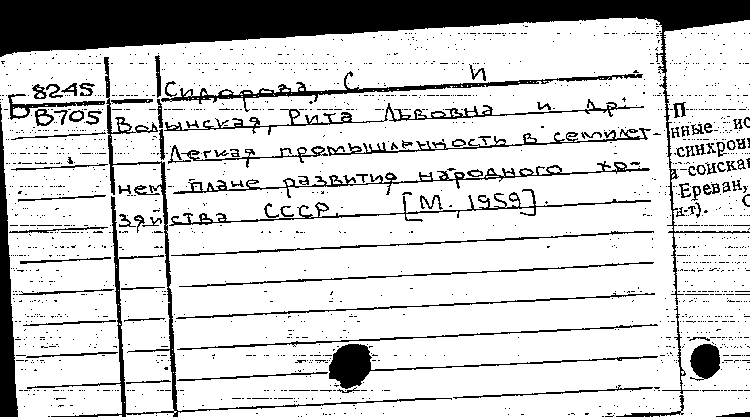 8245 Сидорова, С И
B705 Волынская, Рита Львовна и др:
Легкая промышленность в семилет-
нем плане развития народного хо-
зяйства СССР. [М., 1959].
П
нные ис
синхрон
а соиска
Ереван,
н-т). С